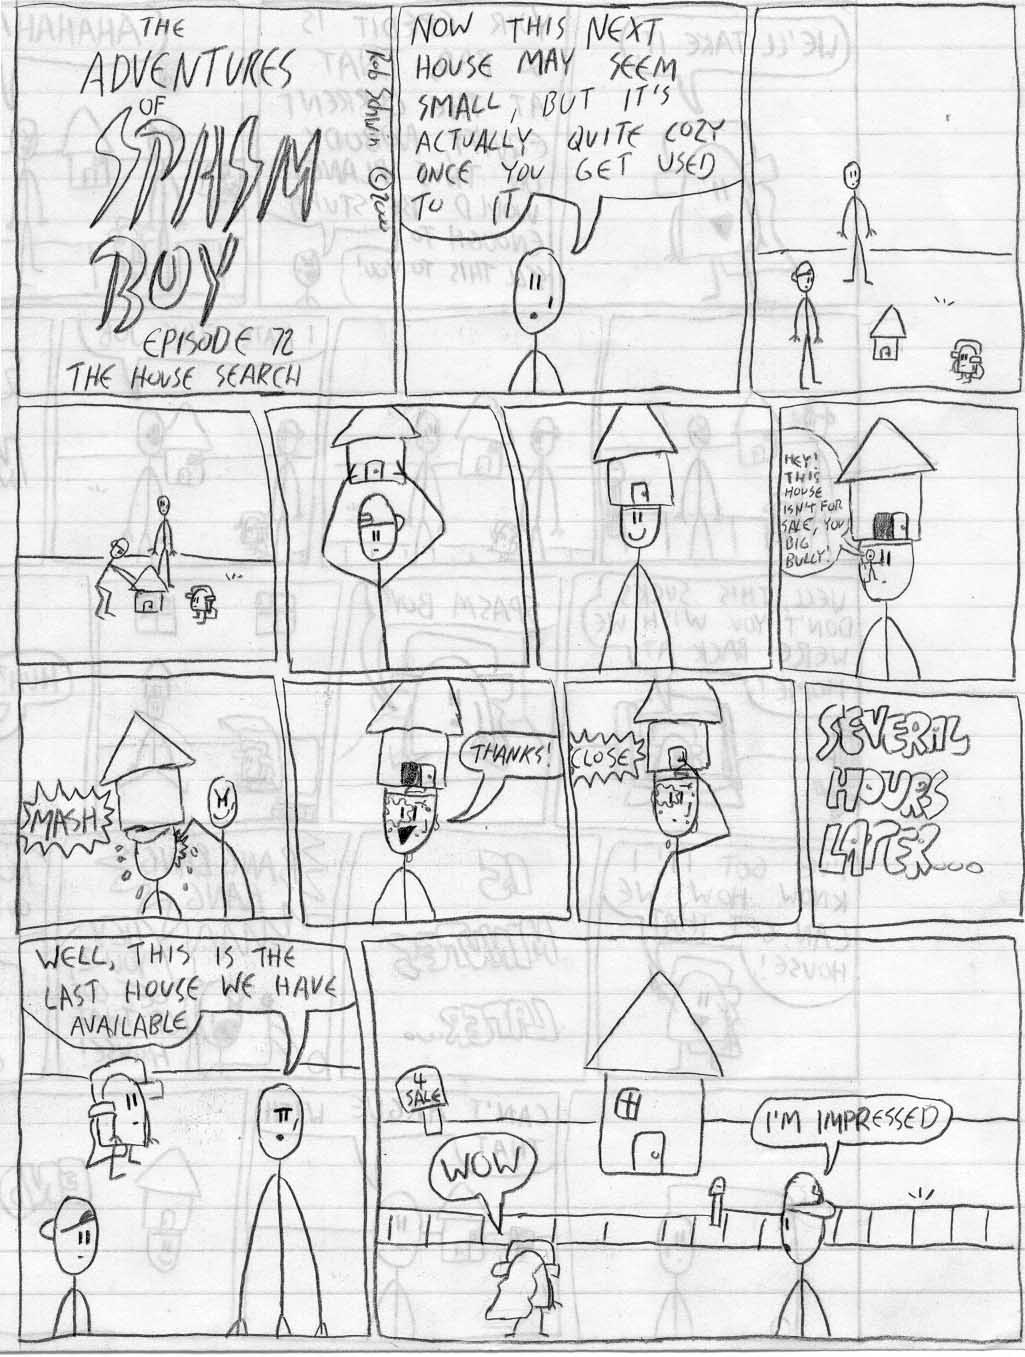 THE
ADVENTURES
OF
SPASM
BOY
EPISODE 72
THE HOUSE SEARCH
Rob Schwin ©2000
NOW THIS NEXT
HOUSE MAY SEEM
SMALL, BUT IT'S
ACTUALLY QUITE COZY
ONCE YOU GET USED
TO IT
HEY!
THIS
HOUSE
ISN'T FOR
SALE, YOU
BIG
BULLY!
SMASH
THANKS!
CLOSE
SEVERAL
HOURS
LATER...
WELL, THIS IS THE
LAST HOUSE WE HAVE
AVAILABLE
4
SALE
WOW
I'M IMPRESSED